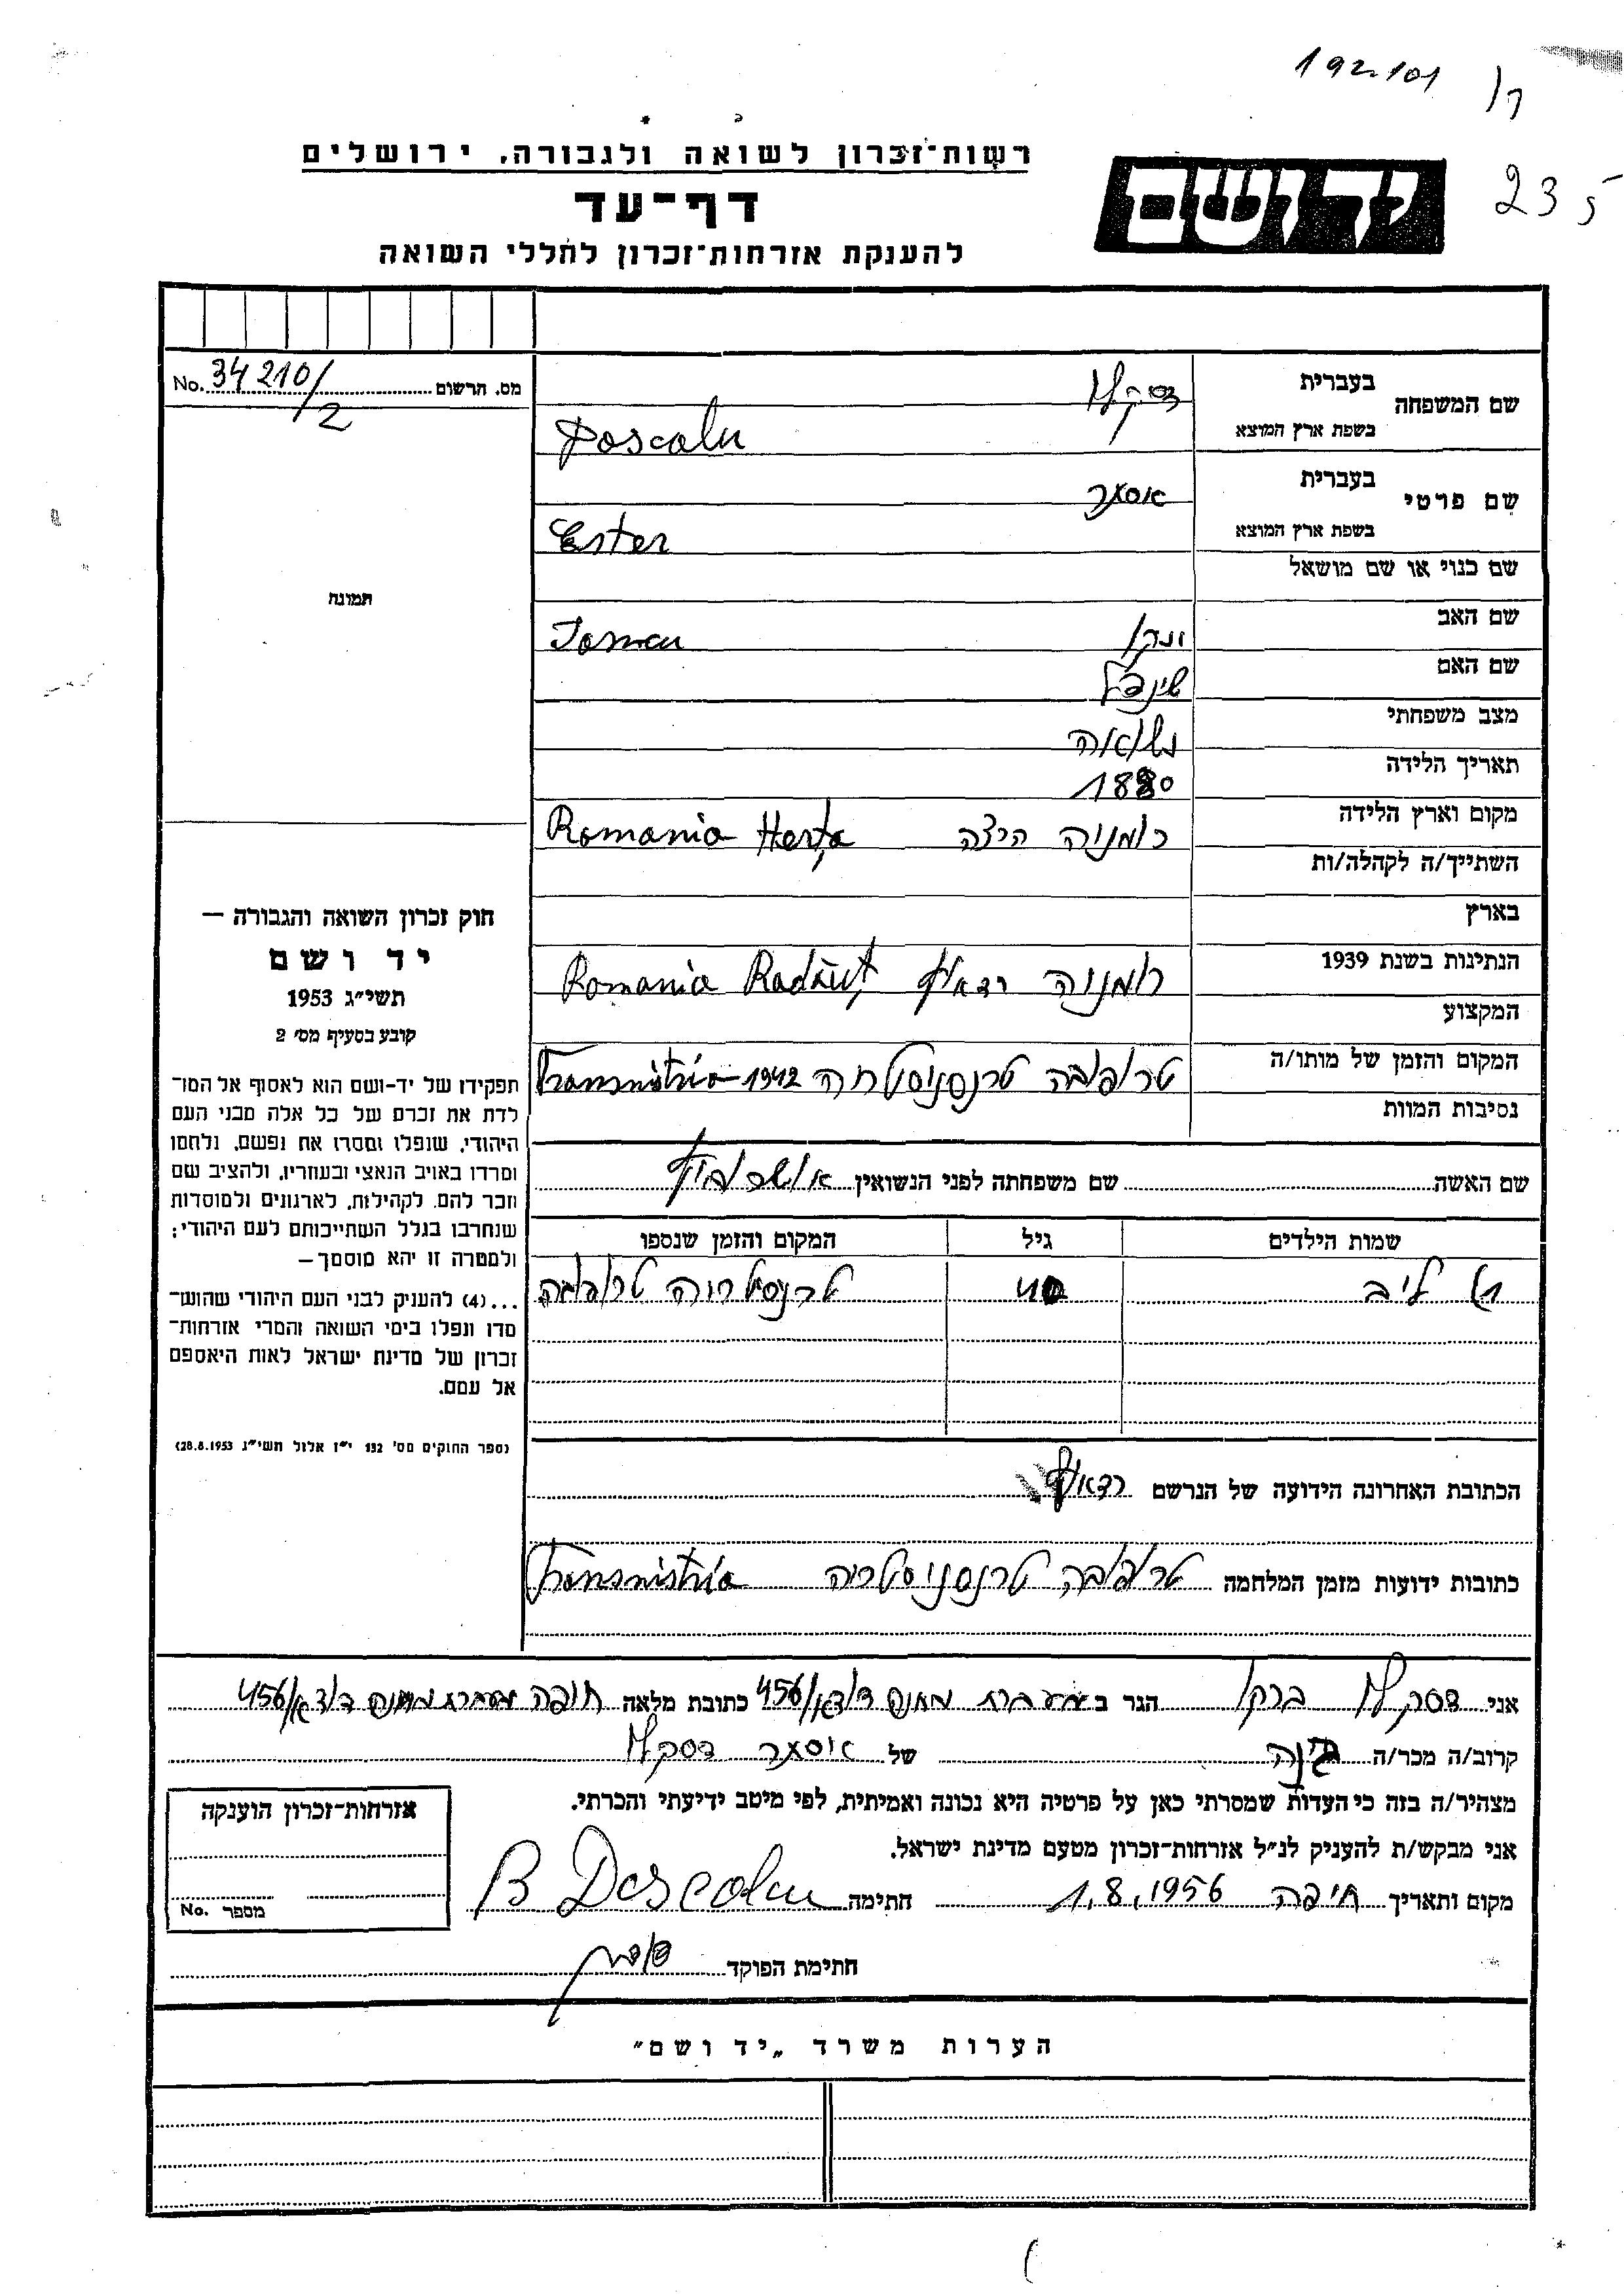 192101
235
רשות־זכרון לשואה ולגבורה, ירושלים
יד ושם
דף־עד
להענקת אזרחות־זכרון לחללי השואה
מס. תרשום No. 34210/2
שם המשפחה בעברית דסקלו
בשפת ארץ המוצא Doscalu
שם פרטי בעברית אסתר
בשפת ארץ המוצא Ester
שם כנוי או שם מושאל
תמונה
שם האב
שם האם
מצב משפחתי נשואה
תאריך הלידה 1880
מקום וארץ הלידה רומניה הרצה Romania Herța
השתייך/ה לקהלה/ות
בארץ
הנתינות בשנת 1939 רומניה רדאוץ Romania Radăuț
המקצוע
המקום והזמן של מותו/ה טרנסניסטריה Transnistria 1942
נסיבות המוות
שם האשה שם משפחתה לפני הנשואין
שמות הילדים גיל המקום והזמן שנספו
ליב
הכתובת האחרונה הידועה של הנרשם רדאוץ
כתובות ידועות מזמן המלחמה טרנסניסטריה Transnistria
חוק זכרון השואה והגבורה —
יד ושם
תשי״ג 1953
קובע בסעיף מס׳ 2
תפקידו של יד-ושם הוא לאסוף אל המו־
לדת את זכרם של כל אלה מבני העם
היהודי, שנפלו ומסרו את נפשם, נלחמו
ומרדו באויב הנאצי ובעוזריו, ולהציב שם
וזכר להם, לקהילות, לארגונים ולמוסדות
שנחרבו בגלל השתייכותם לעם היהודי;
ולמטרה זו יהא מוסמך —
...(4) להעניק לבני העם היהודי שהוש־
מדו ונפלו בימי השואה והמרי אזרחות־
זכרון של מדינת ישראל לאות היאספם
אל עמם.
(ספר החוקים מס׳ 132 י״ז אלול תשי״ג 28.8.1953)
אני דסקלו ברקו הגר ב 456/ כתובת מלאה חיפה 456/
קרוב/ה מכר/ה של אסתר דסקלו
מצהיר/ה בזה כי העדות שמסרתי כאן על פרטיה היא נכונה ואמיתית, לפי מיטב ידיעתי והכרתי.
אני מבקש/ת להעניק לנ״ל אזרחות־זכרון מטעם מדינת ישראל.
מקום ותאריך חיפה 1.8.1956 חתימה B Doscolu
חתימת הפוקד
אזרחות־זכרון הוענקה
מספר No.
הערות משרד „יד ושם״